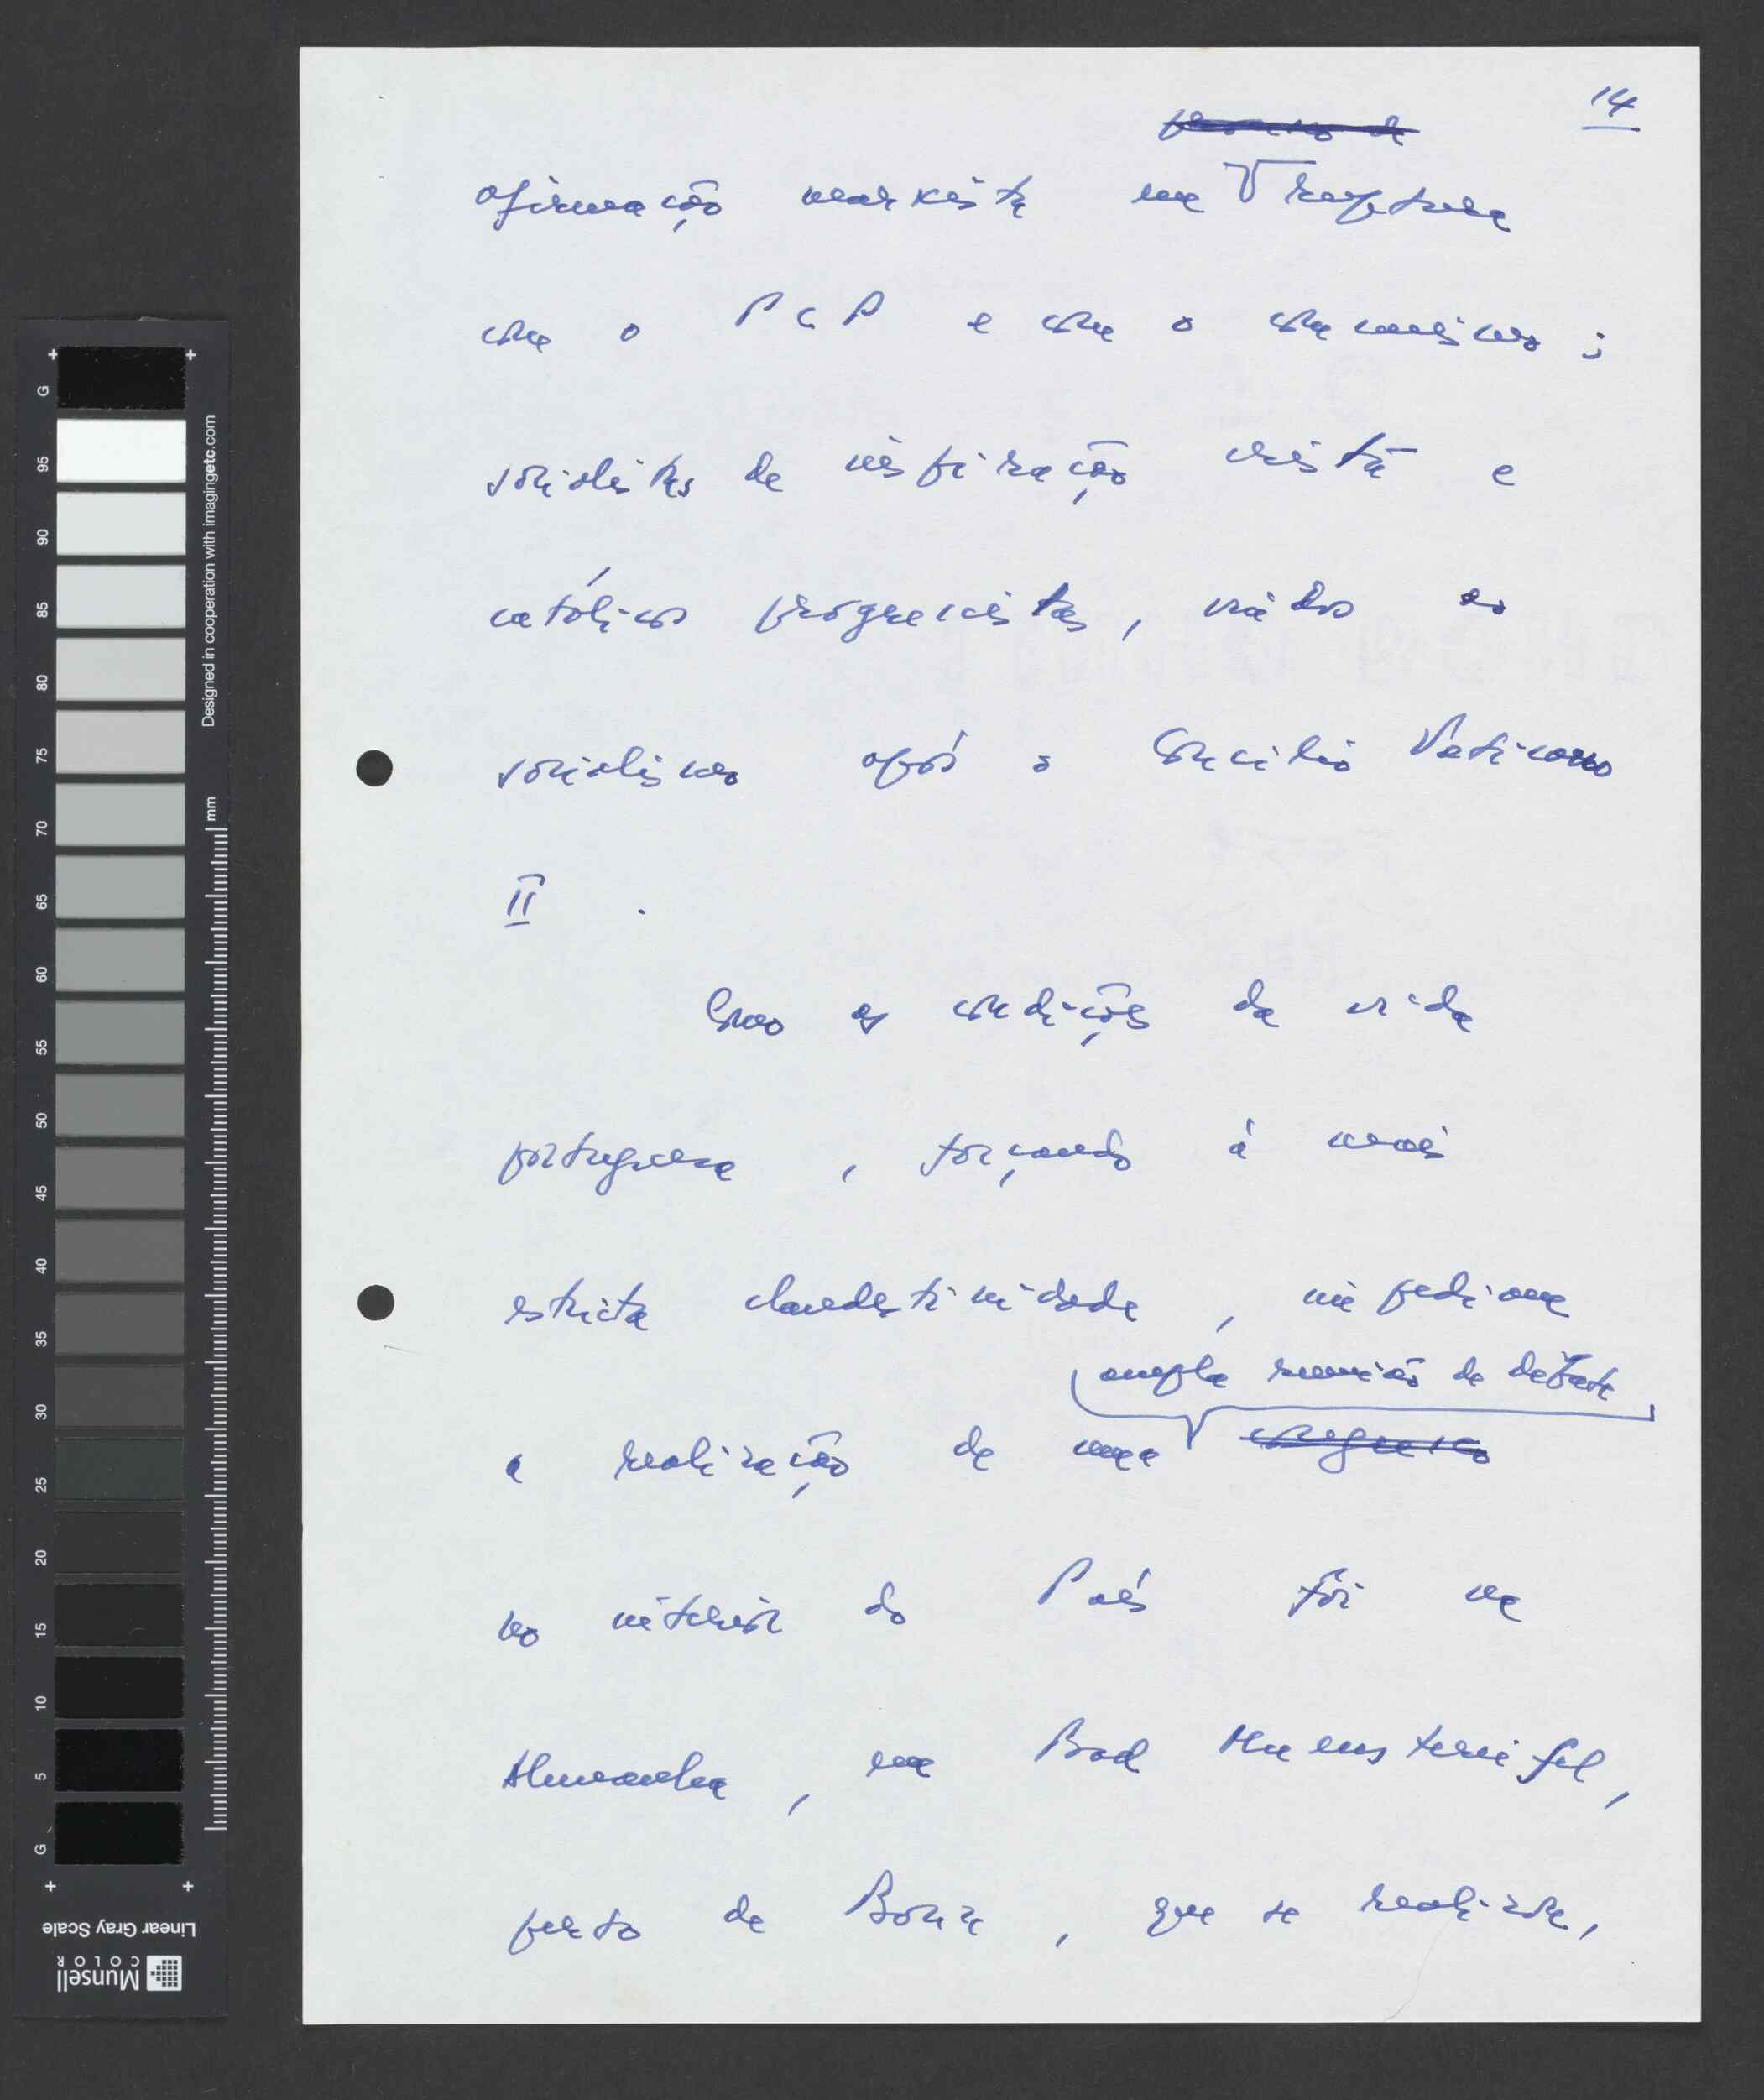 14
processo de
afirmação marxista em ruptura
com o PCP e com o comunismo;
socialistas de inspiração cristã e
católicos progressistas, vindos ao
socialismo após o Concílio Vaticano
II .
Como as condições da vida
portuguesa, forçando à mais
estricta clandestinidade, impediam
ampla reunião de debate
a realização de uma congresso
no interior do País foi na
Alemanha, em Bad Muenstereifel,
perto de Bona, que se realizou,
G
95
90
85
80
75
70
65
60
55
50
45
40
35
30
25
20
15
10
5
G
Designed in cooperation with imagingetc.com
mm
Linear Gray Scale
Munsell
COLOR